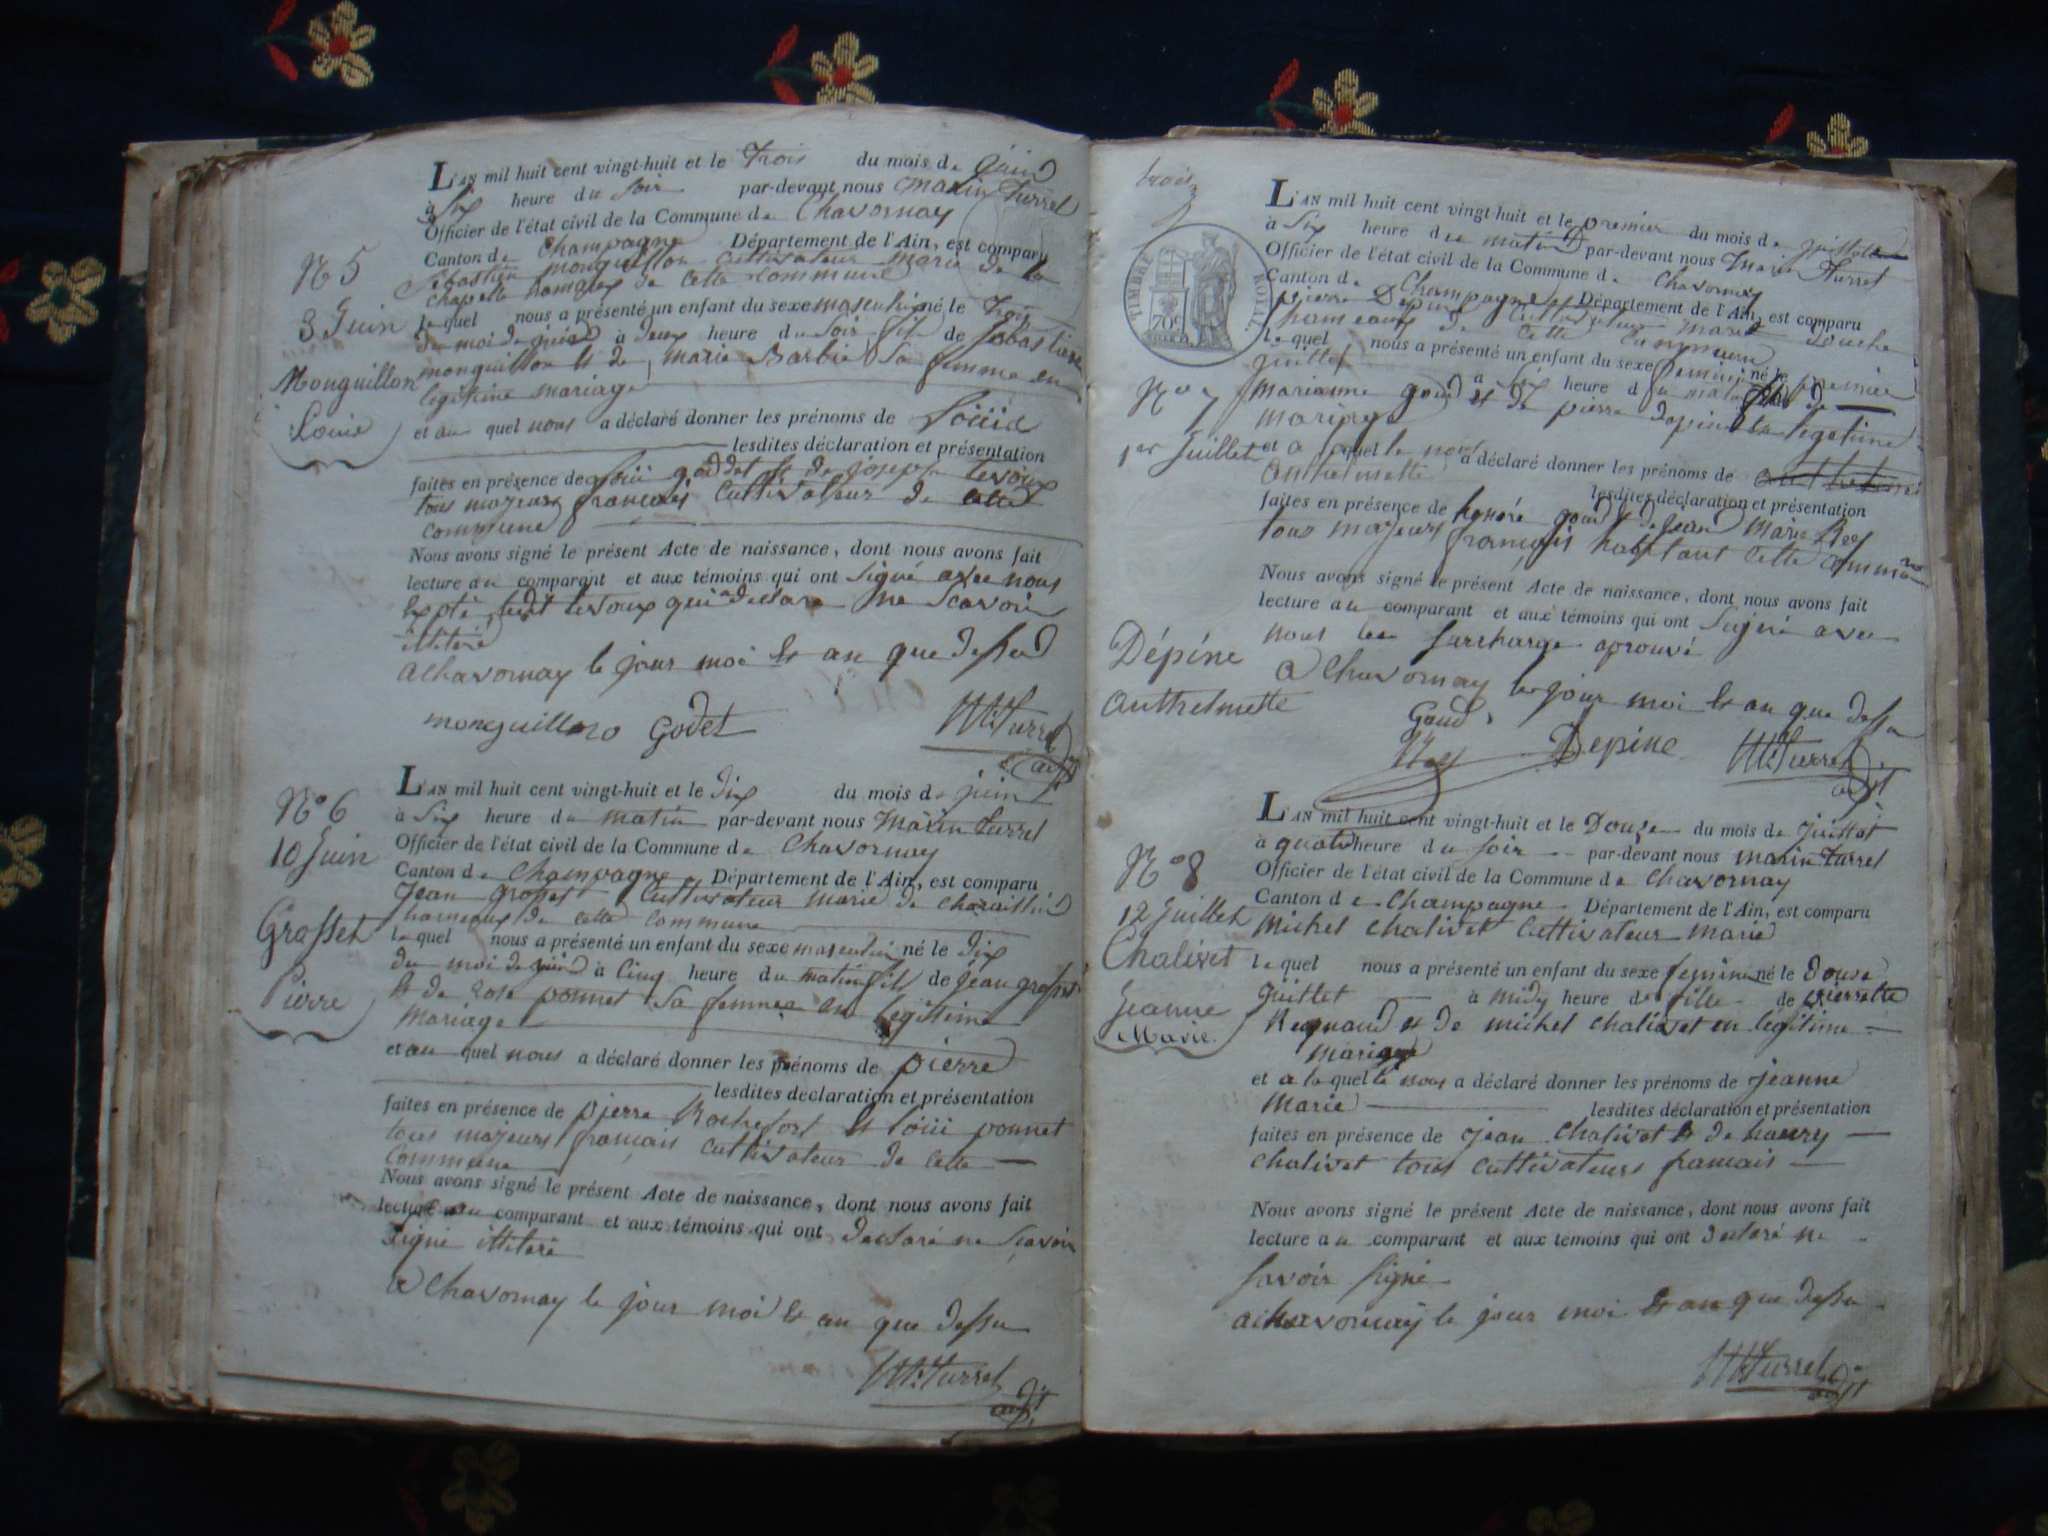 N° 5
3 Juin
Monguillon
Louis
L'AN mil huit cent vingt-huit et le trois du mois de juin
à Six heure du soir par-devant nous marin turrel
Officier de l'état civil de la Commune de Chavornay
Canton de Champagne Département de l'Ain, est comparu
Sebastien monguillon Cultivateur marié de la
chapelle hameaux de cette commune
le quel nous a présenté un enfant du sexe masculin né le trois
du moi de juin à deux heure du soir fils de Sebastien
monguillon et de marie Barbié Sa femme en
legitime mariage
et au quel nous a déclaré donner les prénoms de Loüis
lesdites déclaration et présentation
faites en présence de Loüi goddet et de joseph tevoux
tous majeurs français Cultivateur de cette
commune
Nous avons signé le présent Acte de naissance, dont nous avons fait
lecture au comparant et aux témoins qui ont signé avec nous
Expté ledit tevoux qui a declaré ne Scavoir
illiteré
a Chavornay le jour moi et an que dessus
monguillon Godet M. Turrel
adjt
N° 6
10 Juin
Grosset
Pierre
L'AN mil huit cent vingt-huit et le dix du mois de juin
à Six heure du matin par-devant nous marin turrel
Officier de l'état civil de la Commune de Chavornay
Canton de Champagne Département de l'Ain, est comparu
Jean grosset Cultivateur marié de
hameaux de cette commune
le quel nous a présenté un enfant du sexe masculin né le dix
du moi de juin à Cinq heure du matin fils de jean grosset
et de rose ponnet Sa femme en legitime
mariage
et au quel nous a déclaré donner les prénoms de pierre
lesdites declaration et présentation
faites en présence de pierre Rochefort et Loüi ponnet
tous majeurs français cultivateur de cette
commune
Nous avons signé le présent Acte de naissance, dont nous avons fait
lecture au comparant et aux témoins qui ont declaré ne Scavoir
signé illiteré
a Chavornay le jour moi et an que dessu
M. Turrel
adjt
trois
TIMBRE ROYAL
70 c
N° 7
1er Juillet
Dépine
Anthelmette
L'AN mil huit cent vingt-huit et le premier du mois de juillet
à Six heure du matin par-devant nous Marin turrel
Officier de l'état civil de la Commune de Chavornay
Canton de Champagne Département de l'Ain, est comparu
pierre Depine Cultivateur marié
hameaux de cette commune
le quel nous a présenté un enfant du sexe feminin né le premier
juillet à Six heure du matin fille de
marianne goud et de pierre depine en legetime
mariage
et a la quel le nous a déclaré donner les prénoms de
anthelmette
lesdites déclaration et présentation
faites en présence de honoré goud et de jean marie Rey
tous majeurs français habitant cette commune
Nous avons signé le présent Acte de naissance, dont nous avons fait
lecture au comparant et aux témoins qui ont signé avec
nous les surcharge aprouvé
a Chavornay le jour moi et an que dessu
Goud
Rey Depine M. Turrel
adjt
N° 8
12 Juillet
Chalivet
Jeanne
Marie.
L'AN mil huit cent vingt-huit et le Douze du mois de juillet
à quatre heure du soir par-devant nous marin turrel
Officier de l'état civil de la Commune de Chavornay
Canton de Champagne Département de l'Ain, est comparu
Michel chalivet Cultivateur marié
le quel nous a présenté un enfant du sexe feminin né le douze
juillet à midy heure de fille de pierrette
Reynaud et de michel chalivet en légitime
mariage
et a la quel le nous a déclaré donner les prénoms de jeanne
Marie
lesdites déclaration et présentation
faites en présence de jean Chalivet et de
chalivet tous cultivateurs francais
Nous avons signé le présent Acte de naissance, dont nous avons fait
lecture au comparant et aux témoins qui ont declaré ne
savoir signé
a Chavornay le jour moi et an que dessu
M. Turrel
adjt